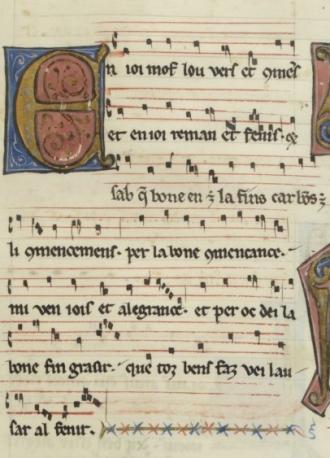 En ioi mof lou vers et ꝯmeſ
et en ioi reman et feniſ· ⁊
ſab q̄ bone en ⁊ la fins car bōs ⁊
li ꝯmencemenſ· per la bone ꝯmencance·
mi ven ioiſ et alegrance· et per oc dei la
bone fin graſir· que toz benſ faz vei lau
ſar al fenir·